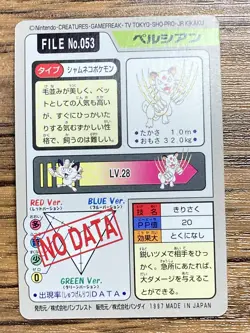 ©Nintendo・CREATURES・GAMEFREAK・TV TOKYO・SHO-PRO・JR KIKAKU
FILE No.053
ペルシアン
タイプ
シャムネコポケモン
毛並みが美しく、ペッ
トとしての人気は高い
性
格で、飼うのは難しい。
・たかさ 1.0m
・おもさ 32.0kg
LV.28
RED Ver.
(レッドバージョン)
BLUE Ver.
(ブルーバージョン)
多
少
0
NO DATA
GREEN Ver.
(グリーンバージョン)
・出現率(しゅつげんりつ)DATA・
技名
きりさく
PP値
20
効果大
とくになし
鋭いツメで相手をひっ
かく。急所にあたれば、
大ダメージを与えるこ
ともできる。
発売元/株式会社バンプレスト
製造元/株式会社バンダイ
1997 MADE IN JAPAN